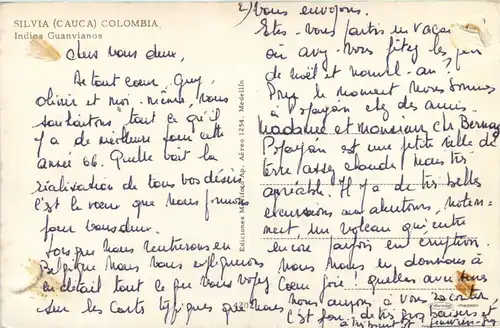 SILVIA (CAUCA) COLOMBIA
Indios Guanvianos
Chers vous deux,
De tout cœur, Guy,
Olivier et moi-même, vous
souhaitons tout ce qu'il
y a de meilleur pour cette
année 66. Qu'elle voit la
réalisation de tous vos désirs
c'est le vœu que nous formons
pour vous deux.
Lorsque nous rentrerons en
Belgique nous vous expliquerons
en détail tout ce que vous voyez
sur les cartes typiques que nous
Ediciones Ap. Aéreo 1254. Medellín
2) vous envoyons.
Etes-vous partis en vacances
où avez-vous fêté les
de Noël et nouvel-an?
Pour le moment nous sommes
à Popayan chez des amis.
Madame et monsieur Ch
Popayan est une petite ville de
terre assez chaude mais très
agréable. Il y a de très belles
excursions aux alentours, notem-
ment, un volcan qui entre
encore parfois en éruption.
Nous nous en donnons à
cœur joie: quelles aventures
nous aurons à vous raconter
C'est fou. de très gros baisers et
à